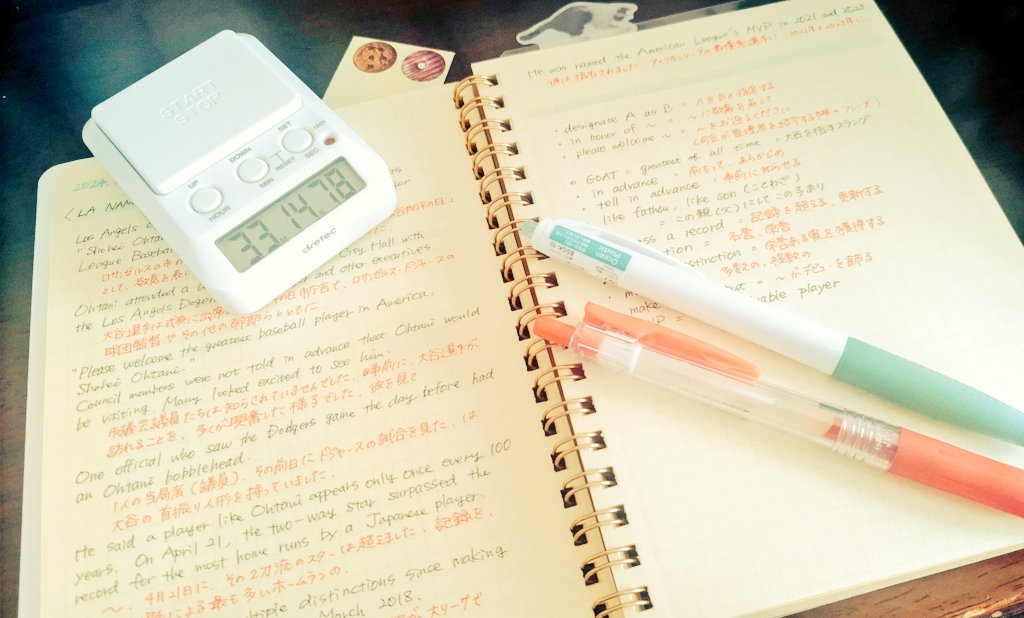 START
STOP
UP
HOUR
DOWN
MIN
SET
RESET
SEC
dretec
2024.
<LA NAM
Los Angeles
"Shohei Ohtan
League Baseba
ロサンゼルスの市
として、敬意を表し
Ohtani attended a
City Hall with
the Los Angels Dodger
and other executives.
大谷選手は式典に出席
市庁舎で、ロサンゼルス・ドジャースの
球団監督やその他の幹部らとともに。
"Please welcome the greatest baseball player in America.
Shohei Ohtani."
Council members were not told in advance that Ohtani would
be visiting. Many looked excited to see him.
市議会議員たちは知らされていませんでした、事前に、大谷選手が
訪れることを。多くが興奮した様子でした、彼を見て
One official who saw the Dodgers game the day before had
an Ohtani bobblehead.
1人の当局者(議員)、その前日にドジャースの試合を見た、は
大谷の首振り人形を持っていました。
He said a player like Ohtani appears only once every 100
years. On April 21, the two-way star surpassed the
record for the most home runs by a Japanese player.
~、4月21日に、その2刀流のスターは超えました、記録を、
による最も多いホームランの。
tiple distinctions since making
March 2018.
が大リーグで
He was named the American League's MVP in 2021 and 2023.
彼は指名されました、アメリカンリーグの最優秀選手に、2021年と2023年に
・designate A as B = AをBと指定する
・in honor of ~ = ~に敬意を表して
・please welcome ~ = ~をお迎えください
(司会が登場者を紹介する際のフレーズ)
○ GOAT = greatest of all time = 史上最高を指すスラング
in advance = 前もって、あらかじめ
・tell in advance = 事前に知らせる
like father, like son (ことわざ)
= この親(父)にしてこの子あり
ss a record = 記録を超える、更新する
tion = 名誉、栄誉
stinction = 栄誉ある賞を獲得する
多数の、複数の
make
but = ~がデビューを飾る
able player
Ocean
Plastic
BSGK-10